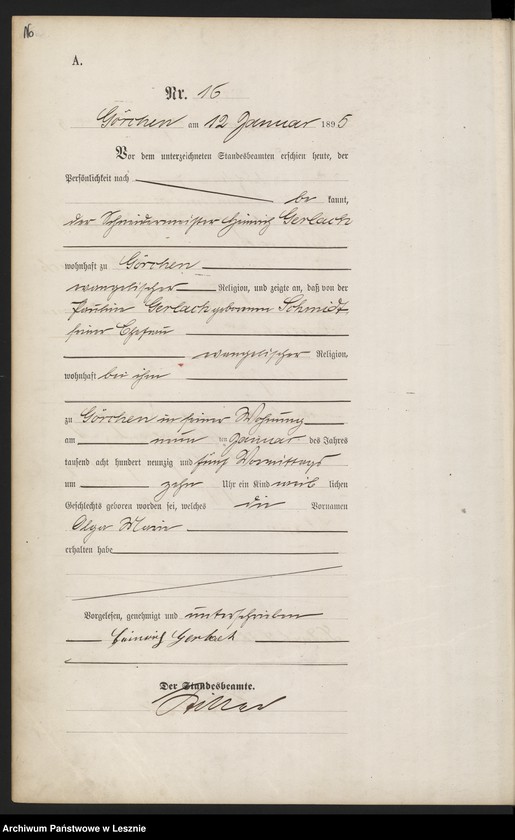 No
A.
Nr. 16
Görchen am 12 Januar 1895
Vor dem unterzeichneten Standesbeamten erschien heute, der
Persönlichkeit nach
be kannt,
der Schneidermeister Heinrich Gerlach
wohnhaft zu Görchen
evangelischer Religion, und zeigte an, daß von der
Pauline Gerlach geborenen Schmidt,
seiner Ehefrau
evangelischer Religion,
wohnhaft bei ihm
zu Görchen in seiner Wohnung
am neun ten Januar des Jahres
tausend acht hundert neunzig und fünf Vormittags
um zehn Uhr ein Kind weib lichen
Geschlechts geboren worden sei, welches die Vornamen
Olga Marie
erhalten habe
Vorgelesen, genehmigt und unterschrieben
Heinrich Gerlach
Der Standesbeamte.
Archiwum Państwowe w Lesznie